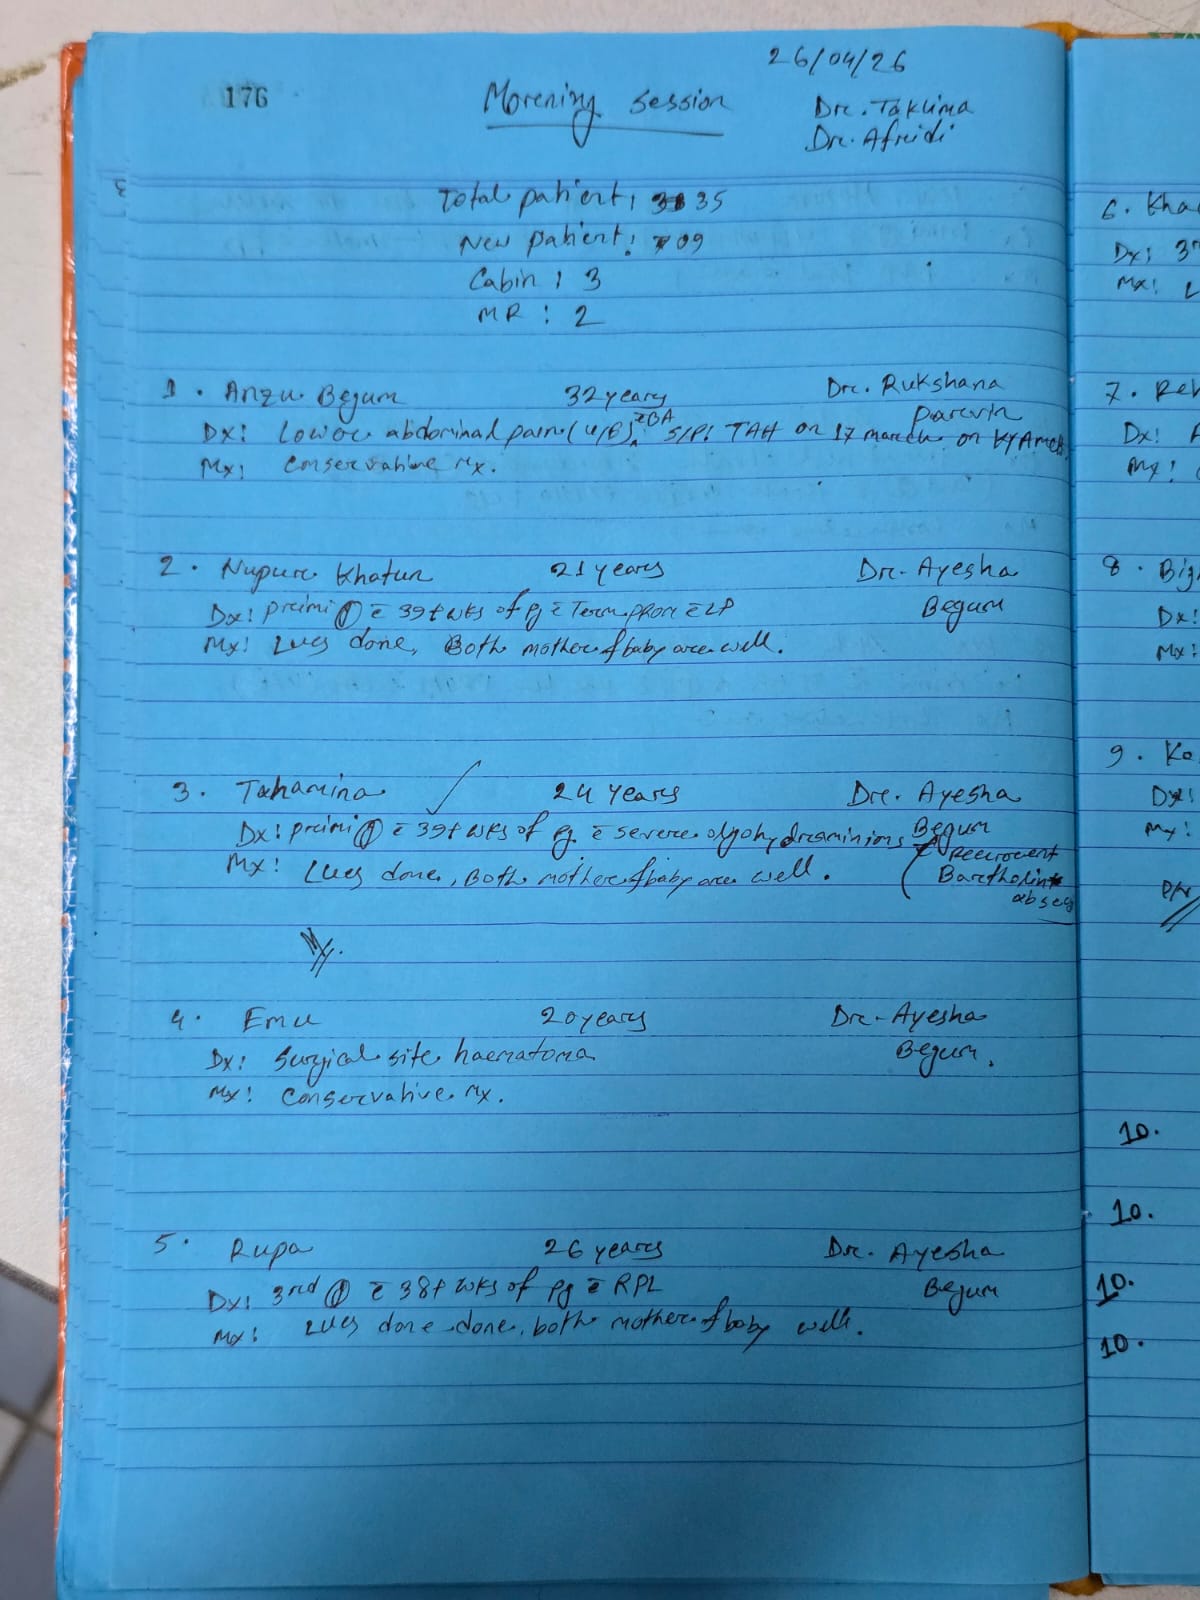 176
26/04/26
Morening session
Dre. Taklima
Dre. Afridi
Total patient: 35
New patient: 09
Cabin : 3
MR : 2
1. Anzu Begum 32 years Dre. Rukshana Parevin
Dx: Lower abdominal pain (u/E) c̄ BA S/P: TAH on 17 march on
Mx: Conservative Mx.
2. Nupure Khatun 21 years Dre. Ayesha Begum
Dx: Preimi c̄ 39+ wks of pg c̄ Term PROM c̄ LP
Mx: LUCS done, Both mother & baby are well.
3. Tahamina 24 years Dre. Ayesha Begum
Dx: Preimi c̄ 39+ wks of pg c̄ severe olgohydreaminions
(Recurrent Bartholin absces
Mx: LUCS done, Both mother & baby are well.
Mx.
4. Emu 20 years Dre. Ayesha Begum.
Dx: Surgical site haematoma
Mx: Conservative Mx.
5. Rupa 26 years Dre. Ayesha Begum
Dx: 3rd c̄ 38+ wks of pg c̄ RPL
Mx: LUCS done done, both mother & baby well.
6. Kha
Dx: 3r
Mx: L
7. Reh
Dx: A
Mx: C
8. Big
Dx:
Mx:
9. Ko
Dx:
Mx:
10.
10.
10.
10.